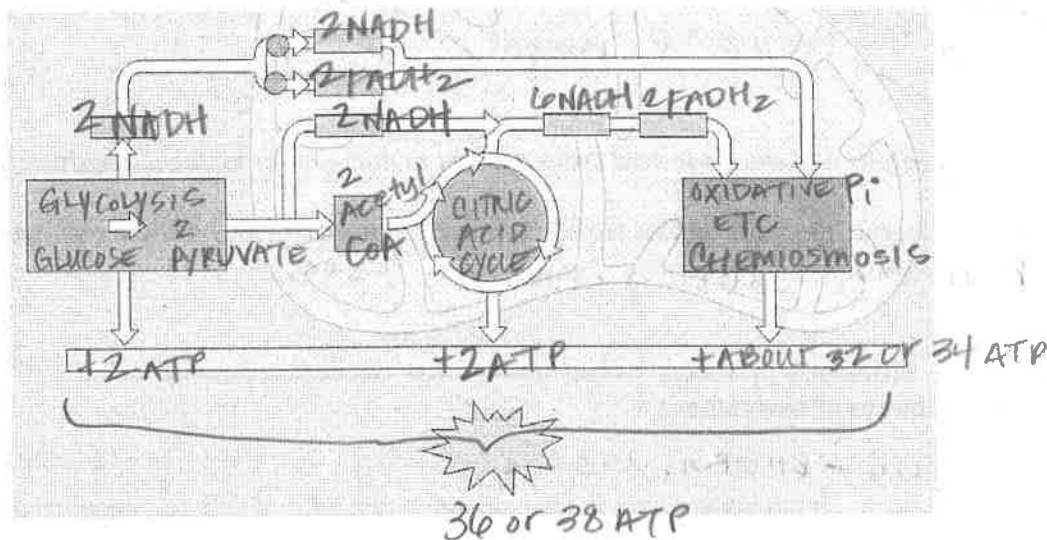 2 NADH
2 FADH2
2 NADH
2 NADH
6 NADH 2 FADH2
GLYCOLYSIS
GLUCOSE
2
PYRUVATE
2
Acetyl
CoA
CITRIC
ACID
CYCLE
OXIDATIVE Pi
ETC
CHEMIOSMOSIS
+2 ATP
+2 ATP
+ABOUT 32 OR 34 ATP
36 or 38 ATP